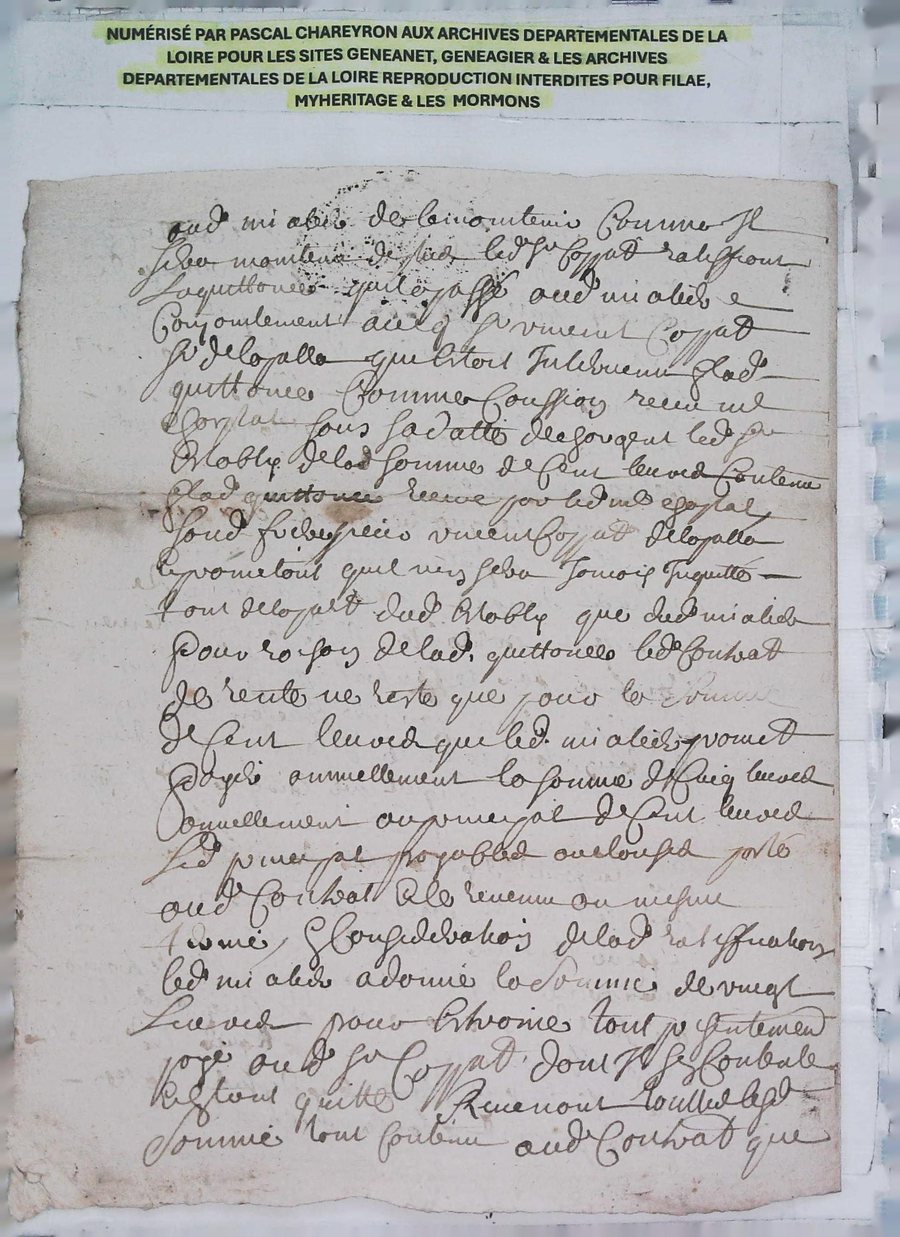 NUMÉRISÉ PAR PASCAL CHAREYRON AUX ARCHIVES DEPARTEMENTALES DE LA
LOIRE POUR LES SITES GENEANET, GENEAGIER & LES ARCHIVES
DEPARTEMENTALES DE LA LOIRE REPRODUCTION INTERDITES POUR FILAE,
MYHERITAGE & LES MORMONS
aud mialier de comme Il
sera de led sr Coppat ratiffiant
La quittance quil a passé aud mialier e
Conjointement avecq sr vincent Coppat
sr de lapalla quy estoit Intervenu
quittance Comme receu me
chortat sous sa datte led sr
de lad somme de Cent livres Contenu
quittance receue par led me
soud vincent Coppat delapalla
promettant quil nen sera Jamais Inquietté
tant delapart dud que dud mialier
pour raison de lad. quittance led Contrat
de rente ne reste que pour la somme
de Cent livres que led. mialier promet
payer annuellement la somme de Cinq livres
annuellement au principal de Cent livres
Led principal payables porté
aud Contrat & le revenu au mesme
terme, Consideration de lad ratiffication
led mialier a donné la Somme de vingt
Livres pour estraine tout presentement
payé aud sr Coppat dont Il se Contente
quitte
Somme tant Contenu aud Contrat que